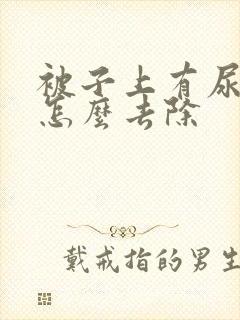 被子上有尿
怎麼去除
戴戒指的男生